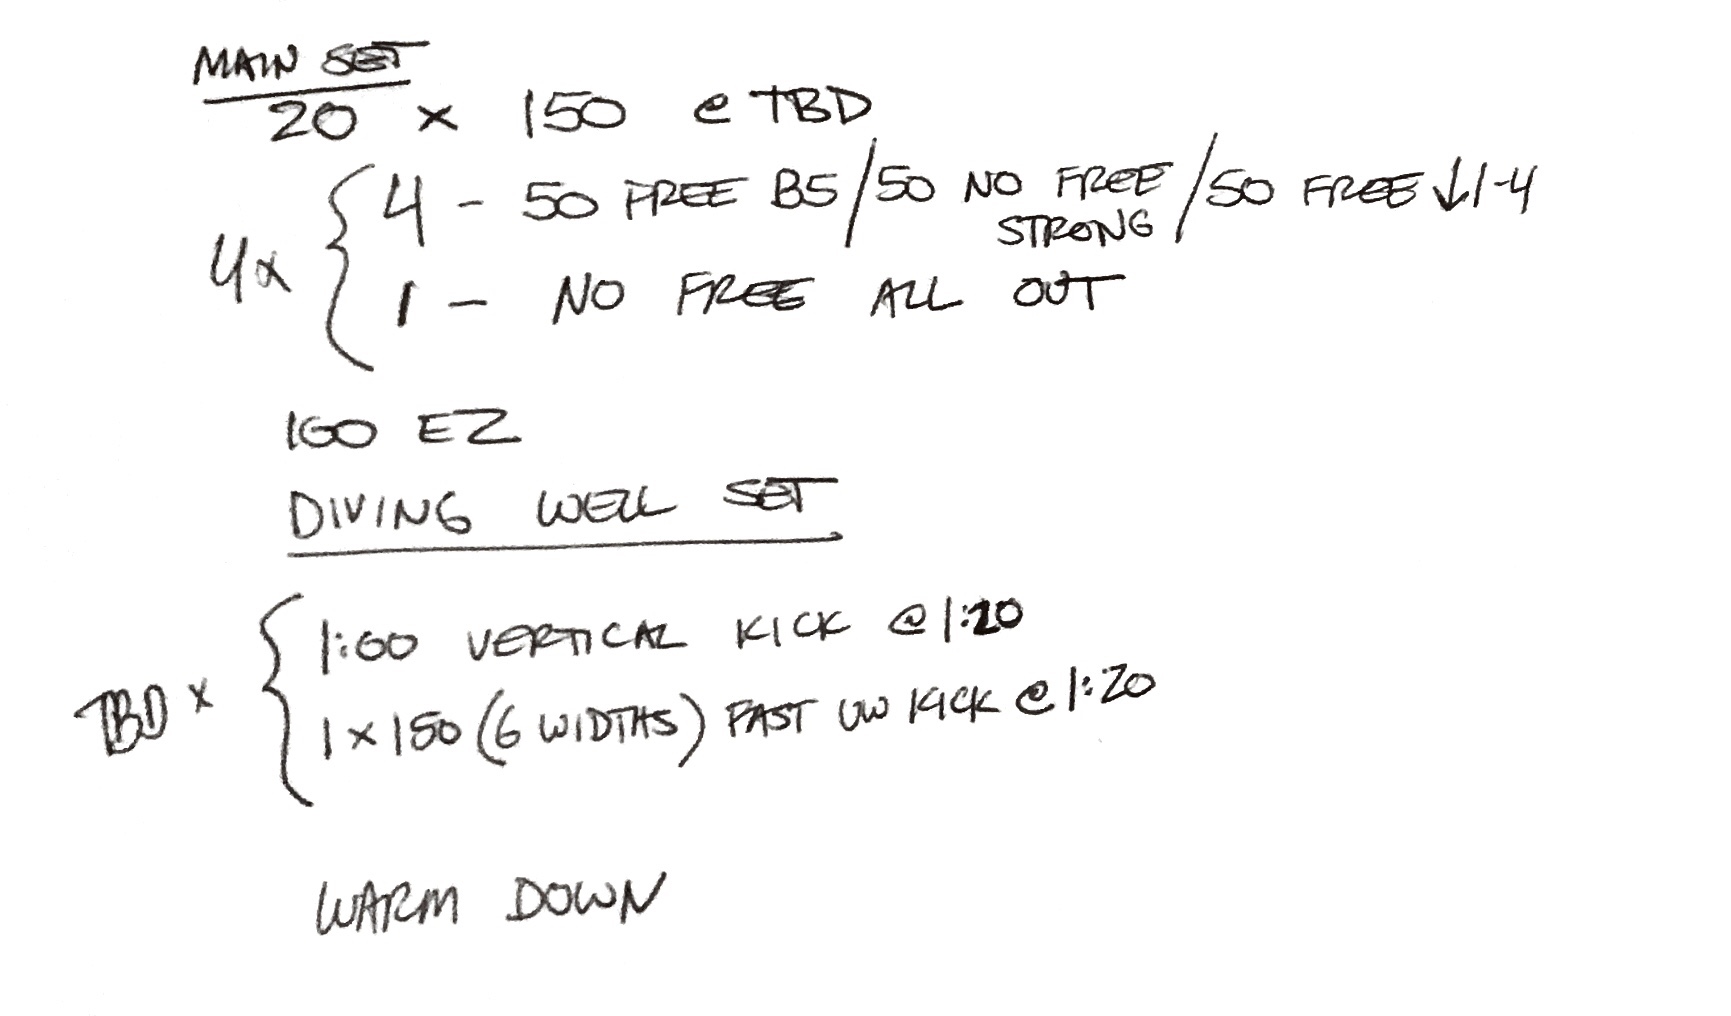 MAIN SET
20 x 150 @ TBD
4x { 4 - 50 FREE B5 / 50 NO FREE STRONG / 50 FREE ↓1-4
1 - NO FREE ALL OUT
100 EZ
DIVING WELL SET
TBD x { 1:00 VERTICAL KICK @ 1:20
1 x 150 (6 WIDTHS) FAST UW KICK @ 1:20
WARM DOWN